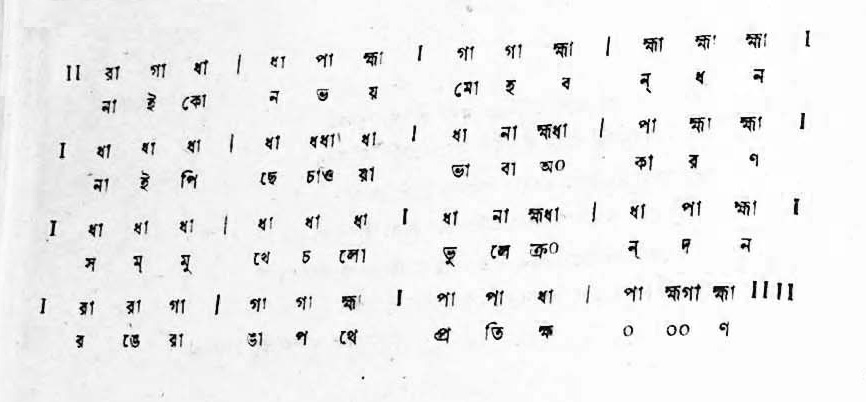 II রা গা ধা | ধা পা হ্মা I গা গা হ্মা | হ্মা হ্মা হ্মা I
না ই কো ন ভ য় মো হ ব ন্ ধ ন
I ধা ধা ধা | ধা ধধা ধা I ধা না হ্মধা | পা হ্মা হ্মা I
না ই পি ছে চাও রা ভা বা অ০ কা র ণ
I ধা ধা ধা | ধা ধা ধা I ধা না হ্মধা | ধা পা হ্মা I
স ম্ মু খে চ লো ভু লে ক্র০ ন্ দ ন
I রা রা গা | গা গা হ্মা I পা পা ধা | পা হ্মগা হ্মা IIII
র ঙে রা ঙা প থে প্র তি ক্ষ ০ ০০ ণ